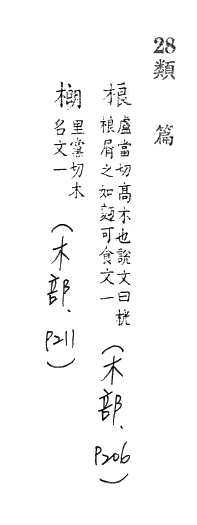 28類篇
桹盧當切高木也說文曰桄
桹屑之如麵可食文一（木部、P206）
樃里黨切木
名文一（木部、P211）